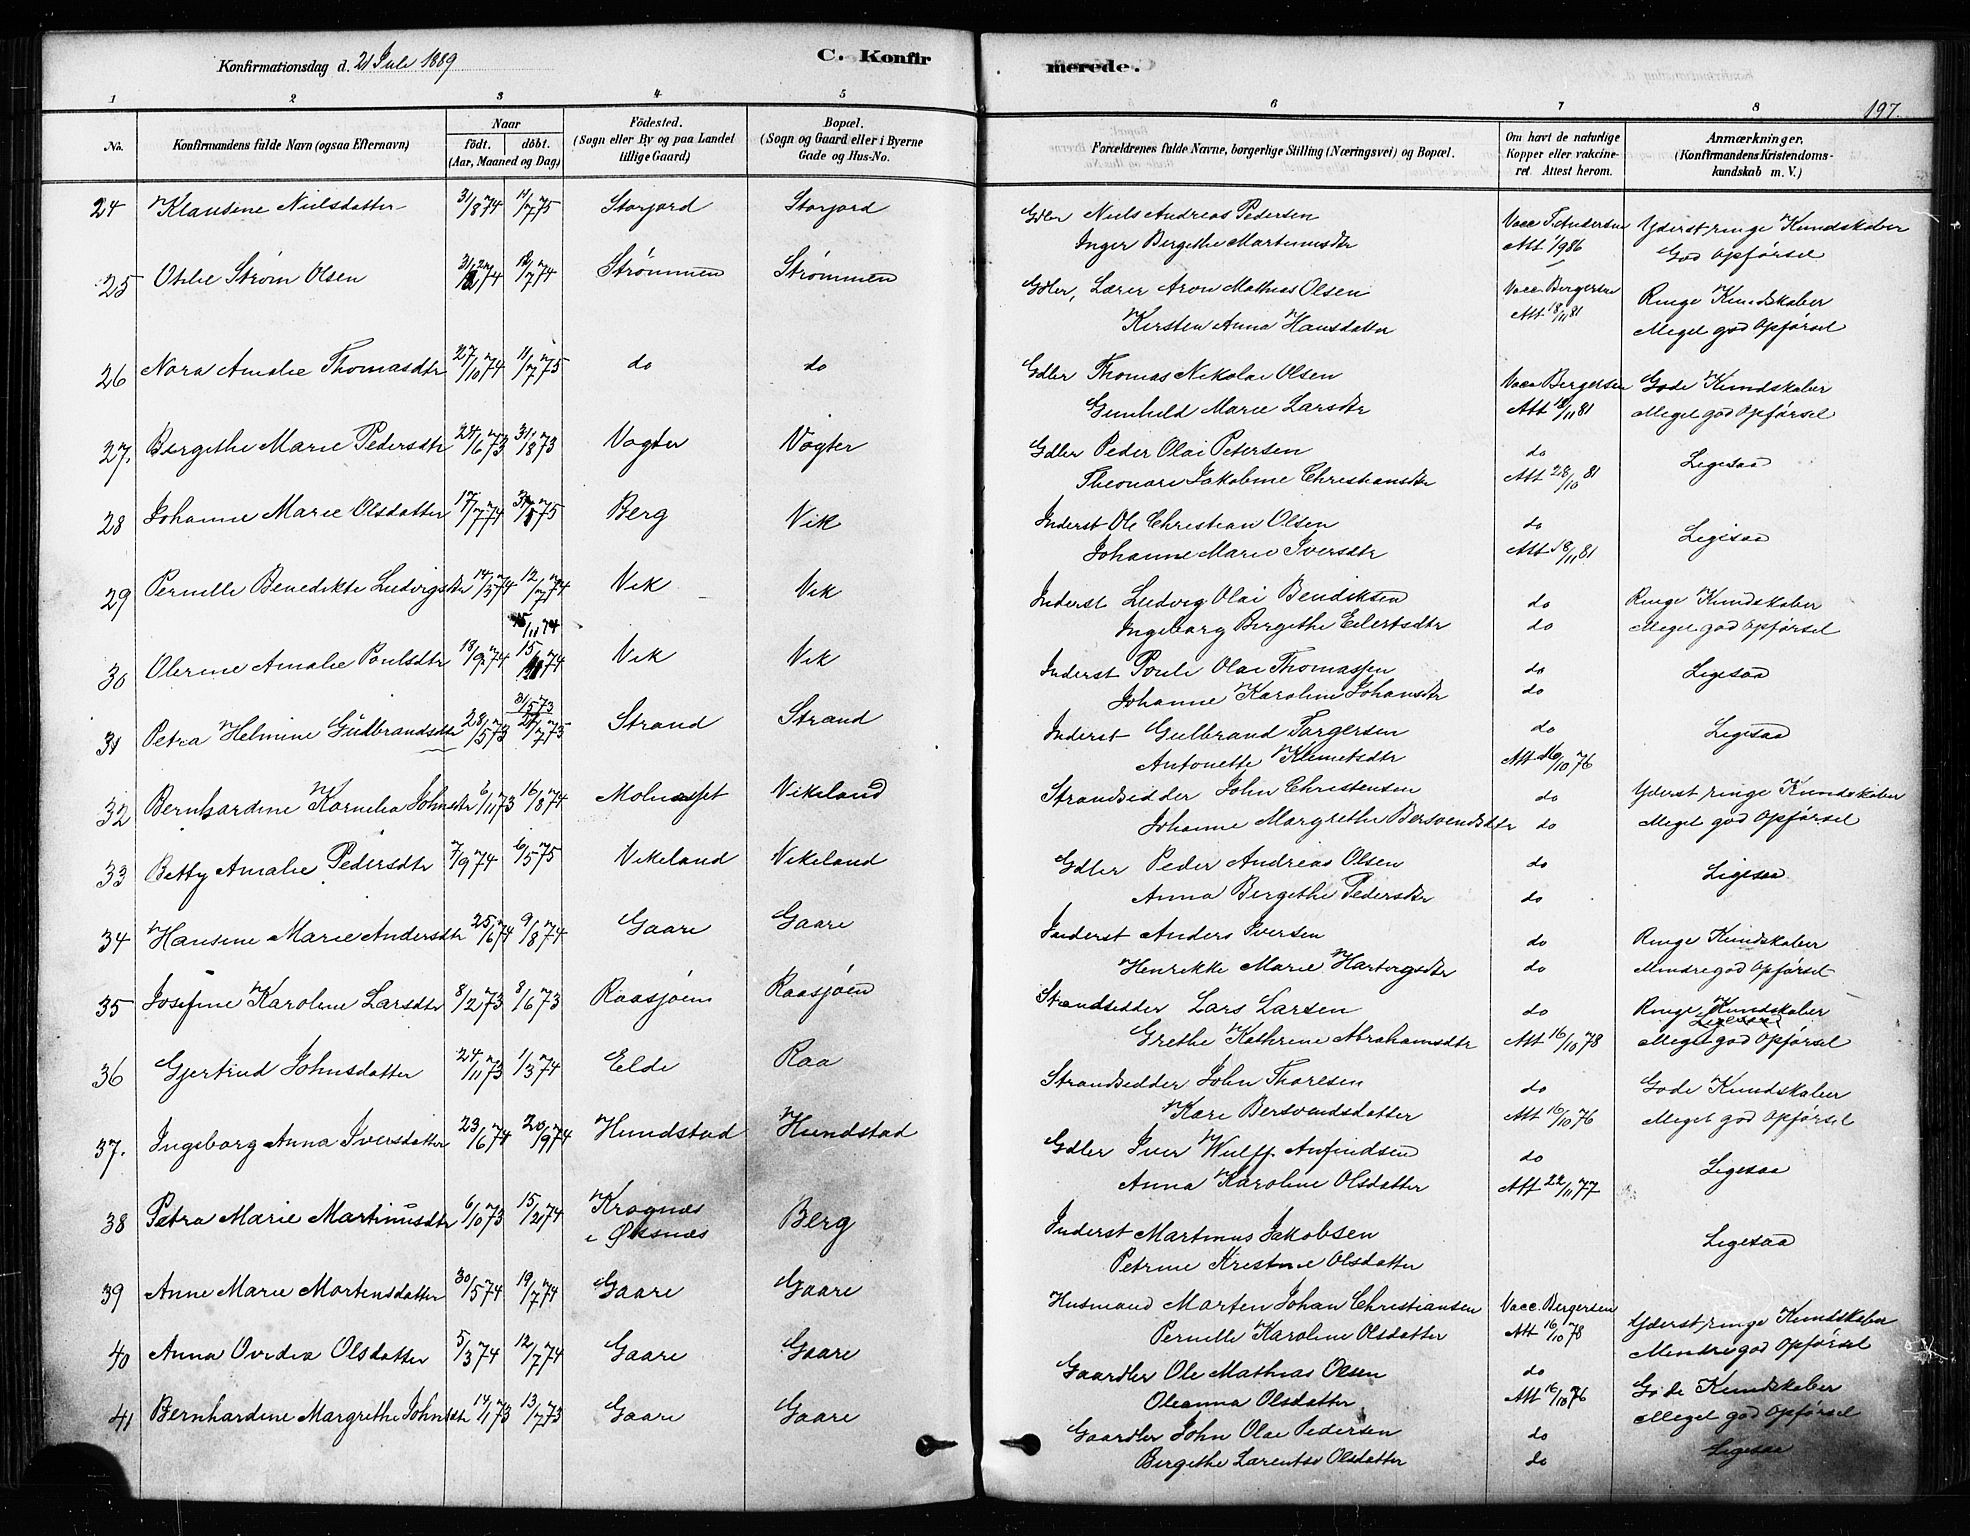 Konfirmationsdag d. 21 Juli 1889
C. Konfirmerede.
197.
1 2 3 4 5 6 7 8
No.
Konfirmandens fulde Navn (ogsaa Efternavn)
Naar
födt. döbt.
(Aar, Maaned og Dag)
Födested.
(Sogn eller By og paa Landet
tillige Gaard)
Bopæl.
(Sogn og Gaard eller i Byerne
Gade og Hus-No.
Forældrenes fulde Navne, borgerlige Stilling (Næringsvei) og Bopæl.
Om havt de naturlige
Kopper eller vakcine-
ret. Attest herom.
Anmærkninger.
(Konfirmandens Kristendoms-
kundskab m. V.)
24 Klausine Nielsdatter 31/8 74 11/7 75 Storjord Storjord Gdler Niels Andreas Pedersen Yderst ringe Kundskaber
Inger Bergithe Martinusdtr Att 1/9 86 God Opførsel
25 Otilie Strøm Olsen 12/7 74 Strømmen Strømmen Gdler, Lærer Aron Mathias Olsen Vacc. Bergersen Ringe Kundskaber
Kirsten Anna Hansdatter Att 18/11 81 Meget god Opførsel
26 Nora Amalie Thomasdtr 27/10 74 11/7 75 do do Gdler Thomas Nikolai Olsen Vacc Bergersen Gode Kundskaber
Gunhild Marie Larsdtr Att 18/11 81 Meget god Opførsel
27. Bergithe Marie Pedersdtr 24/6 73 31/8 73 Vogter Vogter Gdler Peder Olai Petersen do Ligesaa
Theonore Jakobine Christiansdtr Att 28/10 81
28 Johanne Marie Olsdatter 17/7 74 Berg Vik Inderst Ole Christian Olsen do Ligesaa
Johanne Marie Iversdtr Att 18/11 81
29 Pernille Benedikte Ludvigsdtr 14/5 74 12/7 74 Vik Vik Inderst Ludvig Olai Bendiksen do Ringe Kundskaber
Ingeborg Bergithe Eilertsdtr do Meget god Opførsel
15/11 74
30 Olerine Amalie Poulsdtr 18/9 74 Vik Vik Inderst Poul Olai Thomassen do Ligesaa
Johanne Karoline Johansdtr do
31/5 73
31 Petra Helmine Gulbrandsdtr 28/5 73 Strand Strand Inderst Gulbrand Torgersen do Ligesaa
Antonette Klemetsdtr Att 16/10 76
32 Bernhardine Kornelia Johnsdtr 6/11 73 16/8 74 Molnesset Vikeland Strandsidder John Christensen do Yderst ringe Kundskaber
Johanne Margrethe Bersvendsdtr do Meget god Opførsel
33 Betty Amalie Pedersdtr 7/9 74 6/5 75 Vikeland Vikeland Gdler Peder Andreas Olsen do Ligesaa
Anna Bergithe Pedersdtr do
34 Hansine Marie Andersdtr 25/6 74 9/8 74 Gaare Gaare Inderst Anders Iversen do Ringe Kundskaber
Henrikke Marie Hartvigsdtr do Mindre god Opførsel
35 Josefine Karoline Larsdtr 8/2 73 8/6 73 Raasjøen Raasjøen Strandsidder Lars Larsen do Ringe Kundskaber
Grethe Kathrine Abrahamsdtr Att 16/10 78 Meget god Opførsel
36 Gjertrud Johnsdatter 24/11 73 1/3 74 Elde Raa Strandsidder John Thoresen do Gode Kundskaber
Kare Bersvendsdatter Att 16/10 76 Meget god Opførsel
37. Ingeborg Anna Iversdatter 23/6 74 20/9 74 Hundstad Hundstad Gdler Iver Wulff Anfindsen do Ligesaa
Anna Karoline Olsdatter Att 22/11 77
38 Petra Marie Martinusdtr 6/10 73 15/2 74 Krognæs Berg Inderst Martinus Jakobsen Ligesaa
i Øksnæs Petrine Kristine Olsdatter
39 Anne Marie Mortensdatter 30/5 74 19/7 74 Gaare Gaare Husmand Morten Johan Christiansen Vacc. Bergersen Yderst ringe Kundskaber
Pernille Karoline Olsdatter Att 16/10 78 Mindre god Opførsel
40 Anna Ovidia Olsdatter 5/3 74 12/7 74 Gaare Gaare Gaardler Ole Mathias Olsen do Gode Kundskaber
Oleanna Olsdatter Att 16/10 76 Meget god Opførsel
41 Bernhardine Margrethe Johnsdtr 14/1 73 13/7 73 Gaare Gaare Gaardler John Olai Pedersen do Ligesaa
Bergithe Larentse Olsdatter do